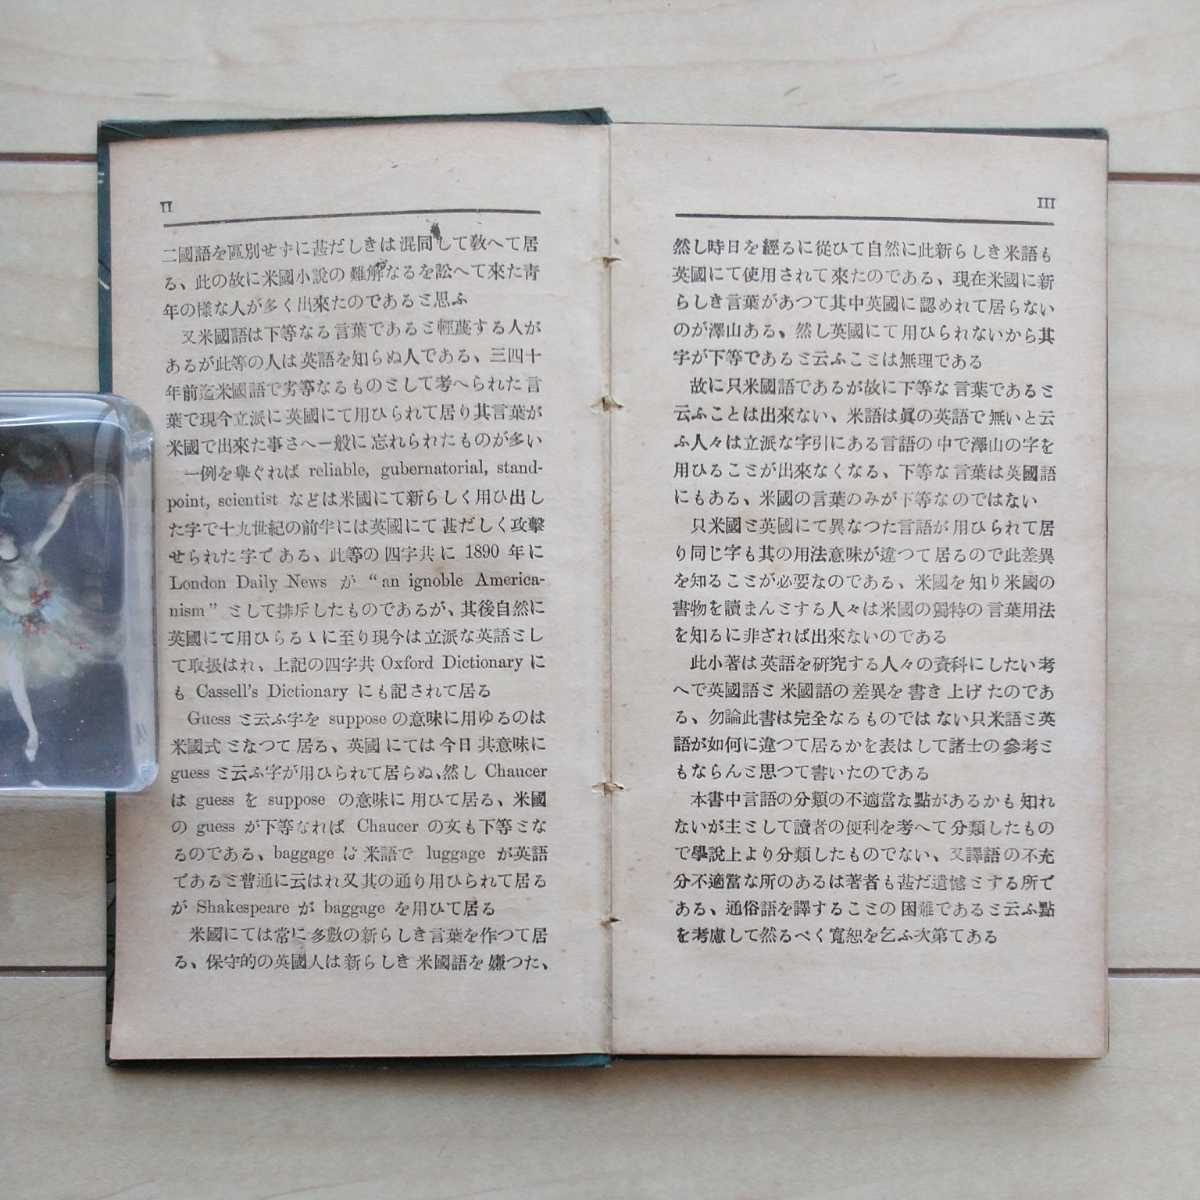 II
二國語を區別せずに甚だしきは混同して敎へて居
る、此の故に米國小說の難解なるを訟へて來た靑
年の樣な人が多く出來たのであると思ふ
又米國語は下等なる言葉であると輕蔑する人が
あるが此等の人は英語を知らぬ人である、三四十
年前迄米國語で劣等なるものとして考へられた言
葉で現今立派に英國にて用ひられて居り其言葉が
米國で出來た事さへ一般に忘れられたものが多い
一例を擧ぐれば reliable, gubernatorial, stand-
point, scientist などは米國にて新らしく用ひ出し
た字で十九世紀の前半には英國にて甚だしく攻擊
せられた字である、此等の四字共に 1890 年に
London Daily News が “an ignoble America-
nism” として排斥したものであるが、其後自然に
英國にて用ひらるゝに至り現今は立派な英語とし
て取扱はれ、上記の四字共 Oxford Dictionary に
も Cassell's Dictionary にも記されて居る
Guess と云ふ字を suppose の意味に用ゆるのは
米國式となつて居る、英國にては今日其意味に
guess と云ふ字が用ひられて居らぬ、然し Chaucer
は guess を suppose の意味に用ひて居る、米國
の guess が下等なれば Chaucer の文も下等とな
るのである、baggage は米語で luggage が英語
であると普通に云はれ又其の通り用ひられて居る
が Shakespeare が baggage を用ひて居る
米國にては常に多數の新らしき言葉を作つて居
る、保守的の英國人は新らしき米國語を嫌つた、
III
然し時日を經るに從ひて自然に此新らしき米語も
英國にて使用されて來たのである、現在米國に新
らしき言葉があつて其中英國に認めれて居らない
のが澤山ある、然し英國にて用ひられないから其
字が下等であると云ふことは無理である
故に只米國語であるが故に下等な言葉であると
云ふことは出來ない、米語は眞の英語で無いと云
ふ人々は立派な字引にある言語の中で澤山の字を
用ひることが出來なくなる、下等な言葉は英國語
にもある、米國の言葉のみが下等なのではない
只米國と英國にて異なつた言語が用ひられて居
り同じ字も其の用法意味が違つて居るので此差異
を知ることが必要なのである、米國を知り米國の
書物を讀まんとする人々は米國の獨特の言葉用法
を知るに非されば出來ないのである
此小著は英語を硏究する人々の資料にしたい考
へで英國語と米國語の差異を書き上げたのであ
る、勿論此書は完全なるものではない只米語と英
語が如何に違つて居るかを表はして諸士の參考と
もならんと思つて書いたのである
本書中言語の分類の不適當な點があるかも知れ
ないが主として讀者の便利を考へて分類したもの
で學說上より分類したものでない、又譯語の不充
分不適當な所のあるは著者も甚だ遺憾とする所で
ある、通俗語を譯することの困難であると云ふ點
を考慮して然るべく寬恕を乞ふ次第てある